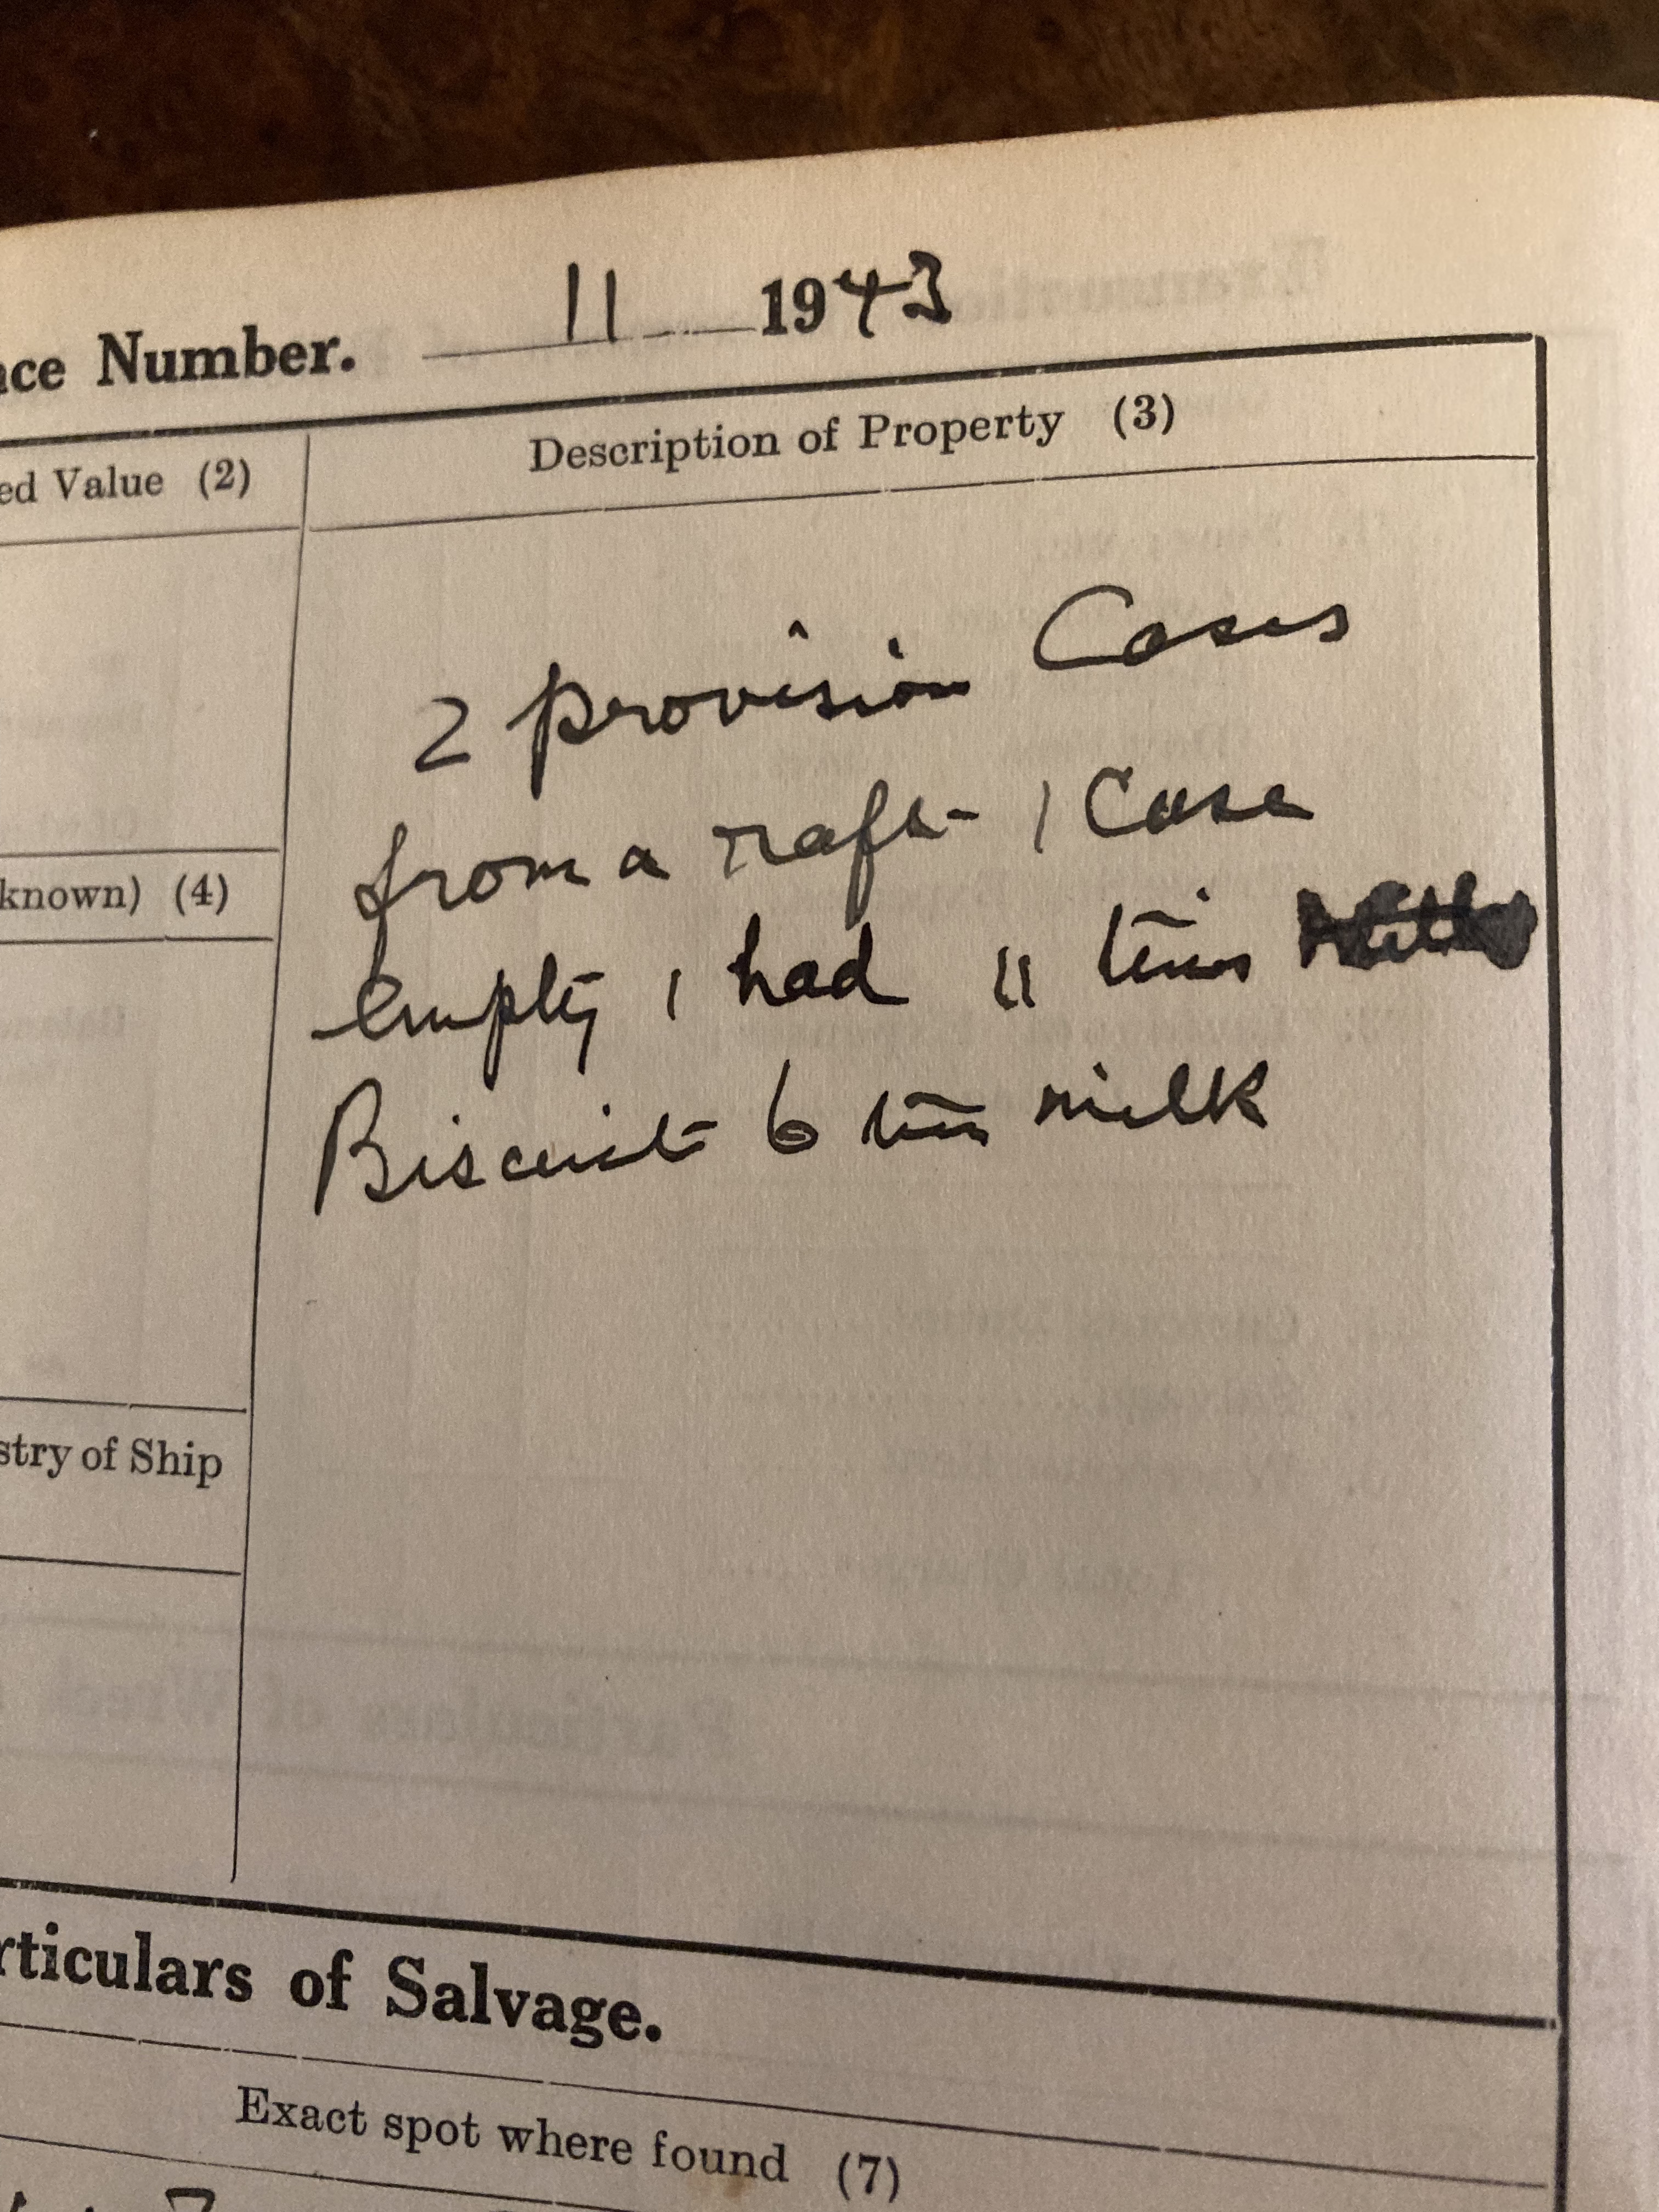 ce Number. 11 1943
ed Value (2)
Description of Property (3)
2 provision Cases
from a raft 1 Case
empty 1 had 11 tins
Biscuit 6 tins milk
known) (4)
stry of Ship
rticulars of Salvage.
Exact spot where found (7)